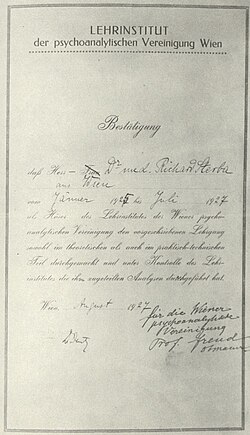 LEHRINSTITUT
der psychoanalytischen Vereinigung Wien
Bestätigung
daß Herr – Frau Dr med. Richard Sterba
aus Wien
vom Jänner 1925 bis Juli 1927
als Hörer des Lehrinstitutes der Wiener psycho-
analytischen Vereinigung den vorgeschriebenen Lehrgang
sowohl im theoretischen als auch im praktisch-technischen
Teil durchgemacht und unter Kontrolle des Lehr-
institutes die ihm zugeteilten Analysen durchgeführt hat.
Wien, August 1927
für die Wiener
psychoanalytische
Vereinigung
Prof. Freud
obmann